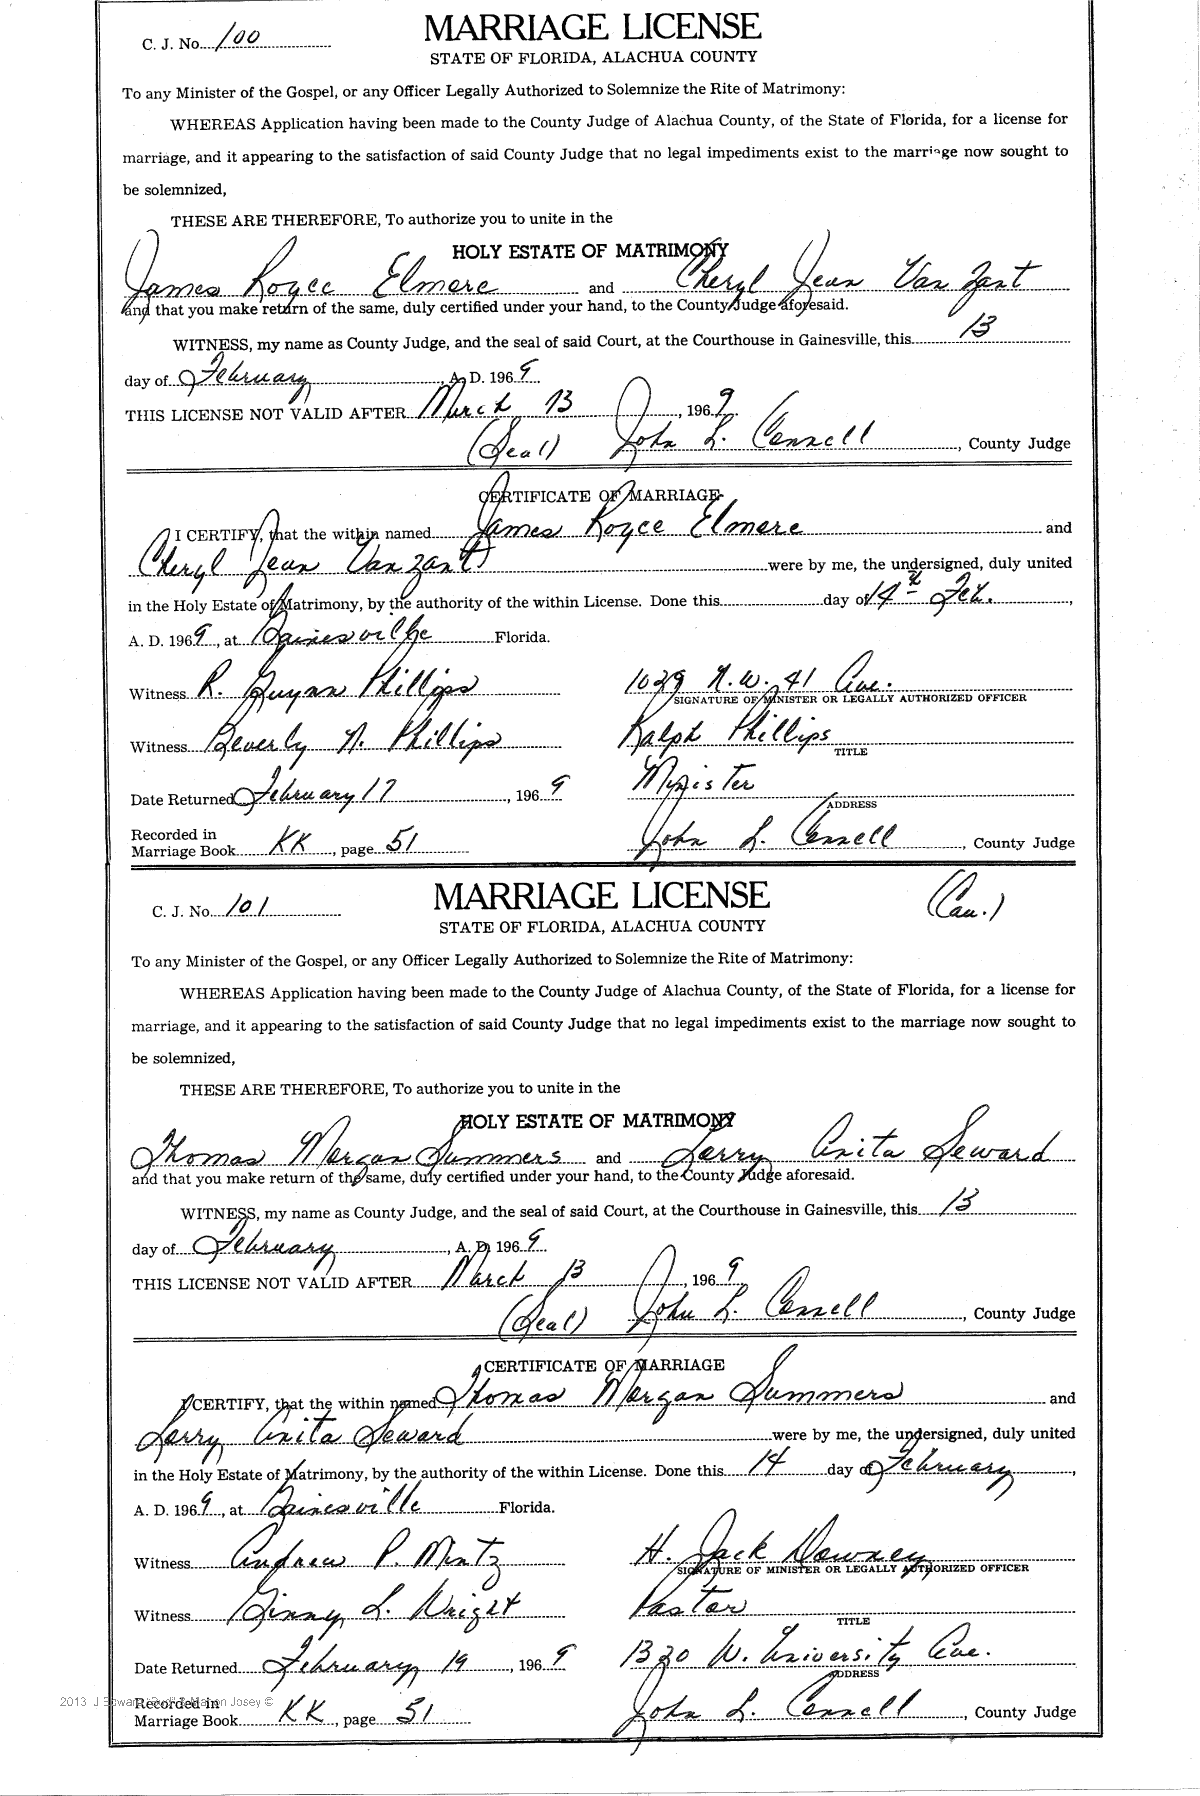 C. J. No. 100
MARRIAGE LICENSE
STATE OF FLORIDA, ALACHUA COUNTY
To any Minister of the Gospel, or any Officer Legally Authorized to Solemnize the Rite of Matrimony:
WHEREAS Application having been made to the County Judge of Alachua County, of the State of Florida, for a license for
marriage, and it appearing to the satisfaction of said County Judge that no legal impediments exist to the marriage now sought to
be solemnized,
THESE ARE THEREFORE, To authorize you to unite in the
HOLY ESTATE OF MATRIMONY
James Royce Elmore and Cheryl Jean Van Zant
and that you make return of the same, duly certified under your hand, to the County Judge aforesaid.
WITNESS, my name as County Judge, and the seal of said Court, at the Courthouse in Gainesville, this 13
day of February, A. D. 1969.
THIS LICENSE NOT VALID AFTER March 13, 1969.
(Seal) John L. Connell, County Judge
CERTIFICATE OF MARRIAGE
I CERTIFY, that the within named James Royce Elmore and
Cheryl Jean Van Zant were by me, the undersigned, duly united
in the Holy Estate of Matrimony, by the authority of the within License. Done this day of 14th Feb.,
A. D. 1969, at Gainesville Florida.
Witness R. Guyan Phillips 1029 N.W. 41 Ave.
SIGNATURE OF MINISTER OR LEGALLY AUTHORIZED OFFICER
Witness Beverly N. Phillips Ralph Phillips
TITLE
Date Returned February 17, 1969 Minister
ADDRESS
Recorded in
Marriage Book KK, page 51 John L. Connell, County Judge
C. J. No. 101
MARRIAGE LICENSE (Cau.)
STATE OF FLORIDA, ALACHUA COUNTY
To any Minister of the Gospel, or any Officer Legally Authorized to Solemnize the Rite of Matrimony:
WHEREAS Application having been made to the County Judge of Alachua County, of the State of Florida, for a license for
marriage, and it appearing to the satisfaction of said County Judge that no legal impediments exist to the marriage now sought to
be solemnized,
THESE ARE THEREFORE, To authorize you to unite in the
HOLY ESTATE OF MATRIMONY
Thomas Morgan Summers and Lorry Anita Seward
and that you make return of the same, duly certified under your hand, to the County Judge aforesaid.
WITNESS, my name as County Judge, and the seal of said Court, at the Courthouse in Gainesville, this 13
day of February, A. D. 1969.
THIS LICENSE NOT VALID AFTER March 13, 1969.
(Seal) John L. Connell, County Judge
CERTIFICATE OF MARRIAGE
I CERTIFY, that the within named Thomas Morgan Summers and
Lorry Anita Seward were by me, the undersigned, duly united
in the Holy Estate of Matrimony, by the authority of the within License. Done this 14 day of February,
A. D. 1969, at Gainesville Florida.
Witness Andrew P. Mintz H. Jack Downey
SIGNATURE OF MINISTER OR LEGALLY AUTHORIZED OFFICER
Witness Ginny L. Wright Pastor
TITLE
Date Returned February 19, 1969 1320 W. University Ave.
ADDRESS
Recorded in
Marriage Book KK, page 51 John L. Connell, County Judge
2013 J Josey ©